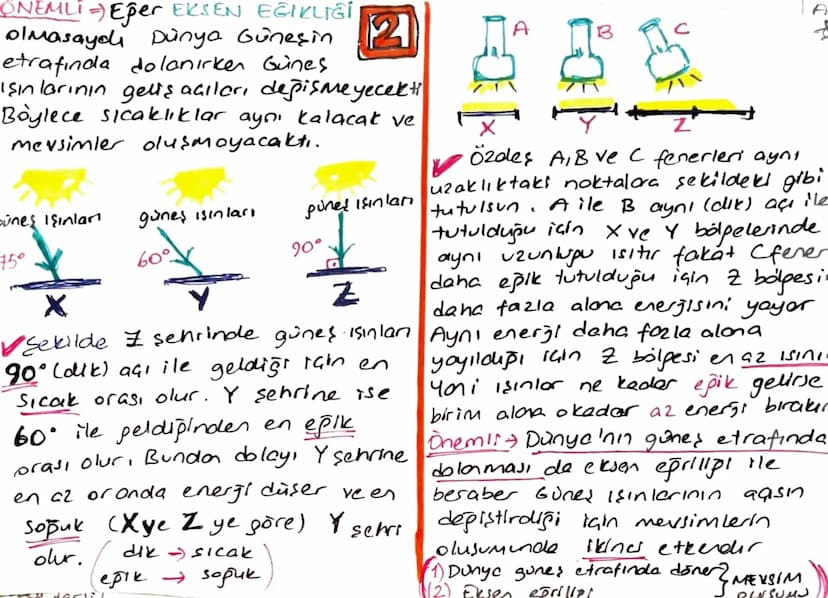 ÖNEMLİ → Eğer EKSEN EĞİKLİĞİ
olmasaydı Dünya Güneşin
etrafında dolanırken Güneş
ışınlarının geliş açıları değişmeyecekti
Böylece sıcaklıklar aynı kalacak ve
mevsimler oluşmayacaktı.
2
güneş ışınları
güneş ışınları
güneş ışınları
75°
60°
90°
X
Y
Z
✓ Şekilde Z şehrinde güneş ışınları
90° (dik) açı ile geldiği için en
sıcak orası olur. Y şehrine ise
60° ile geldiğinden en eğik
orası olur. Bundan dolayı Y şehrine
en az oranda enerji düşer ve en
soğuk (X ye Z ye göre) Y şehri
olur.
(dik → sıcak
eğik → soğuk)
A
B
C
X
Y
Z
✓ Özdeş A, B ve C fenerleri aynı
uzaklıktaki noktalara şekildeki gibi
tutulsun. A ile B aynı (dik) açı ile
tutulduğu için X ve Y bölgelerinde
aynı uzunluğu ısıtır fakat C fener
daha eğik tutulduğu için Z bölgesi
daha fazla alana enerjisini yayar
Aynı enerji daha fazla alana
yayıldığı için Z bölgesi en az ısınır
Yani ışınlar ne kadar eğik gelirse
birim alana o kadar az enerji bırakır
Önemli → Dünya'nın güneş etrafında
dolanması da eksen eğriliği ile
beraber Güneş ışınlarının açısın
değiştirdiği için mevsimlerin
oluşumunda ikinci etkendir
1) Dünya güneş etrafında döner
2) Eksen eğriliği
} MEVSİM
OLUŞUMU